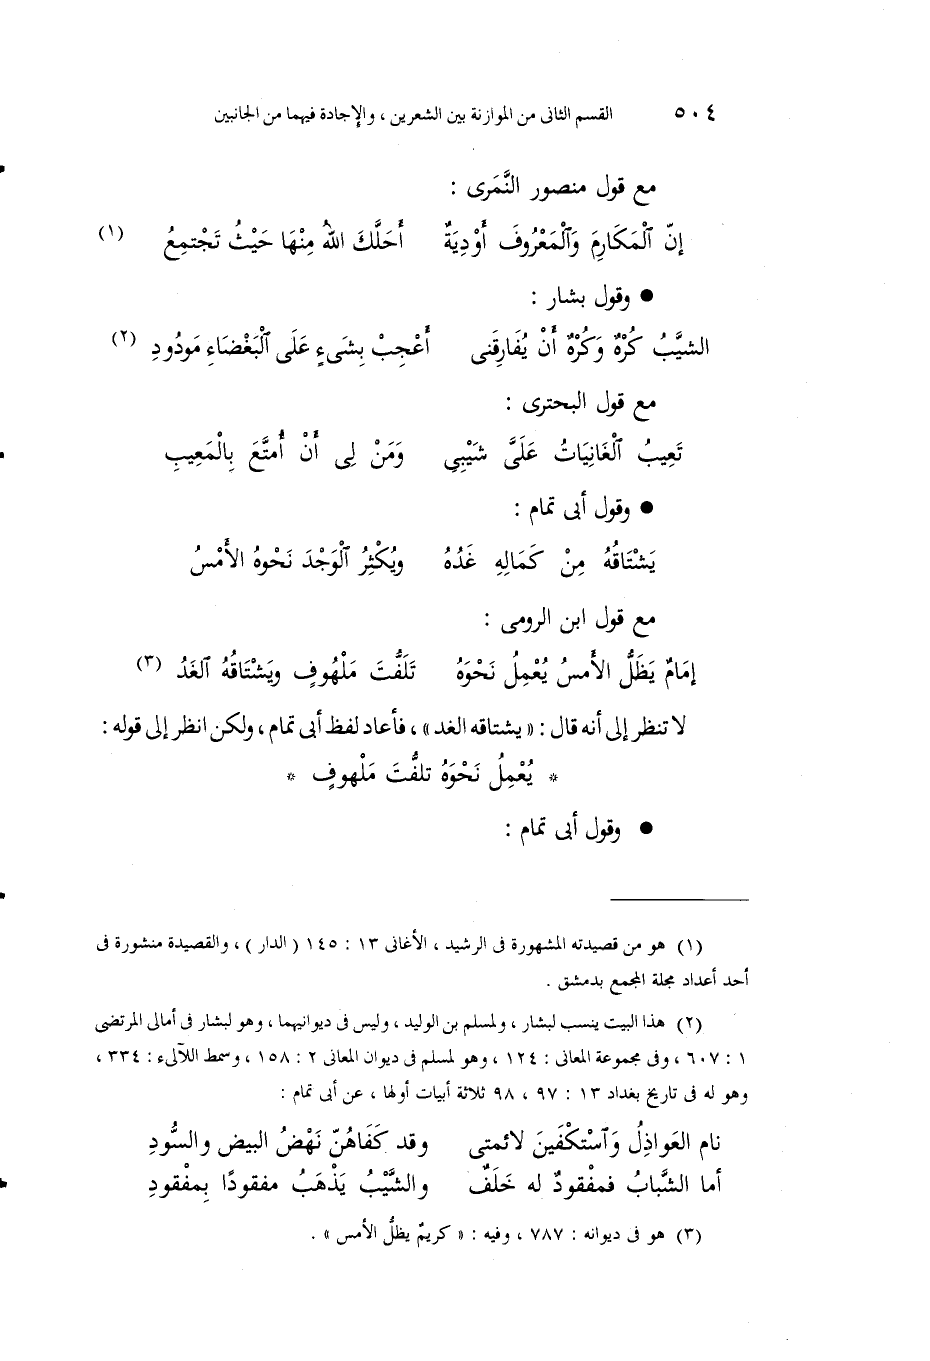 ٥٠٤ القسم الثانى من الموازنة بين الشعرين ، والإجادة فيهما من الجانبين
مع قول منصور النَّمَرى :
إنّ ٱلْمَكَارِمَ وَٱلْمَعْرُوفَ أَوْدِيَةٌ أَحَلَّكَ اللهُ مِنْهَا حَيْثُ تَجْتمِعُ (١)
● وقول بشار :
الشيَّبُ كُرْهٌ وَكُرْهٌ أَنْ يُفَارِقَنى أَعْجِبْ بِشَىءٍ عَلَى ٱلْبَغْضَاءِ مَوْدُودِ (٢)
مع قول البحترى :
تَعِيبُ ٱلْغَانِيَاتُ عَلَىَّ شَيْبِى وَمَنْ لِى أَنْ أُمتَّعَ بِالْمَعِيبِ
● وقول أبى تمام :
يَشْتَاقُهُ مِنْ كَمَالِهِ غَدُهُ ويُكْثِرُ ٱلْوَجْدَ نَحْوهُ الأَمْسُ
مع قول ابن الرومى :
إمَامٌ يَظَلُّ الأَمسُ يُعْمِلُ نَحْوَهُ تَلَفُّتَ مَلْهُوفٍ ويَشْتَاقُهُ ٱلغَدُ (٣)
لا تنظر إلى أنه قال : « يشتاقه الغد » ، فأعاد لفظ أبى تمام ، ولكن انظر إلى قوله :
* يُعْمِلُ نَحْوَهُ تلفُّتَ مَلْهوفٍ *
● وقول أبى تمام :
(١) هو من قصيدته المشهورة فى الرشيد ، الأغانى ١٣ : ١٤٥ ( الدار ) ، والقصيدة منشورة فى
أحد أعداد مجلة المجمع بدمشق .
(٢) هذا البيت ينسب لبشار ، ولمسلم بن الوليد ، وليس فى ديوانيهما ، وهو لبشار فى أمالى المرتضى
١ : ٦٠٧ ، وفى مجموعة المعانى : ١٢٤ ، وهو لمسلم فى ديوان المعانى ٢ : ١٥٨ ، وسمط اللآلىء : ٣٣٤ ،
وهو له فى تاريخ بغداد ١٣ : ٩٧ ، ٩٨ ثلاثة أبيات أولها ، عن أبى تمام :
نام العَواذِلُ وَٱسْتكْفَينَ لائمتى وقد كَفَاهُنّ نَهْضُ البيض والسُّودِ
أما الشَّبابُ فمفْقودٌ له خَلَفٌ والشَّيْبُ يَذْهَبُ مفقودًا بِمفْقودِ
(٣) هو فى ديوانه : ٧٨٧ ، وفيه : « كريمٌ يظلُّ الأمس » .